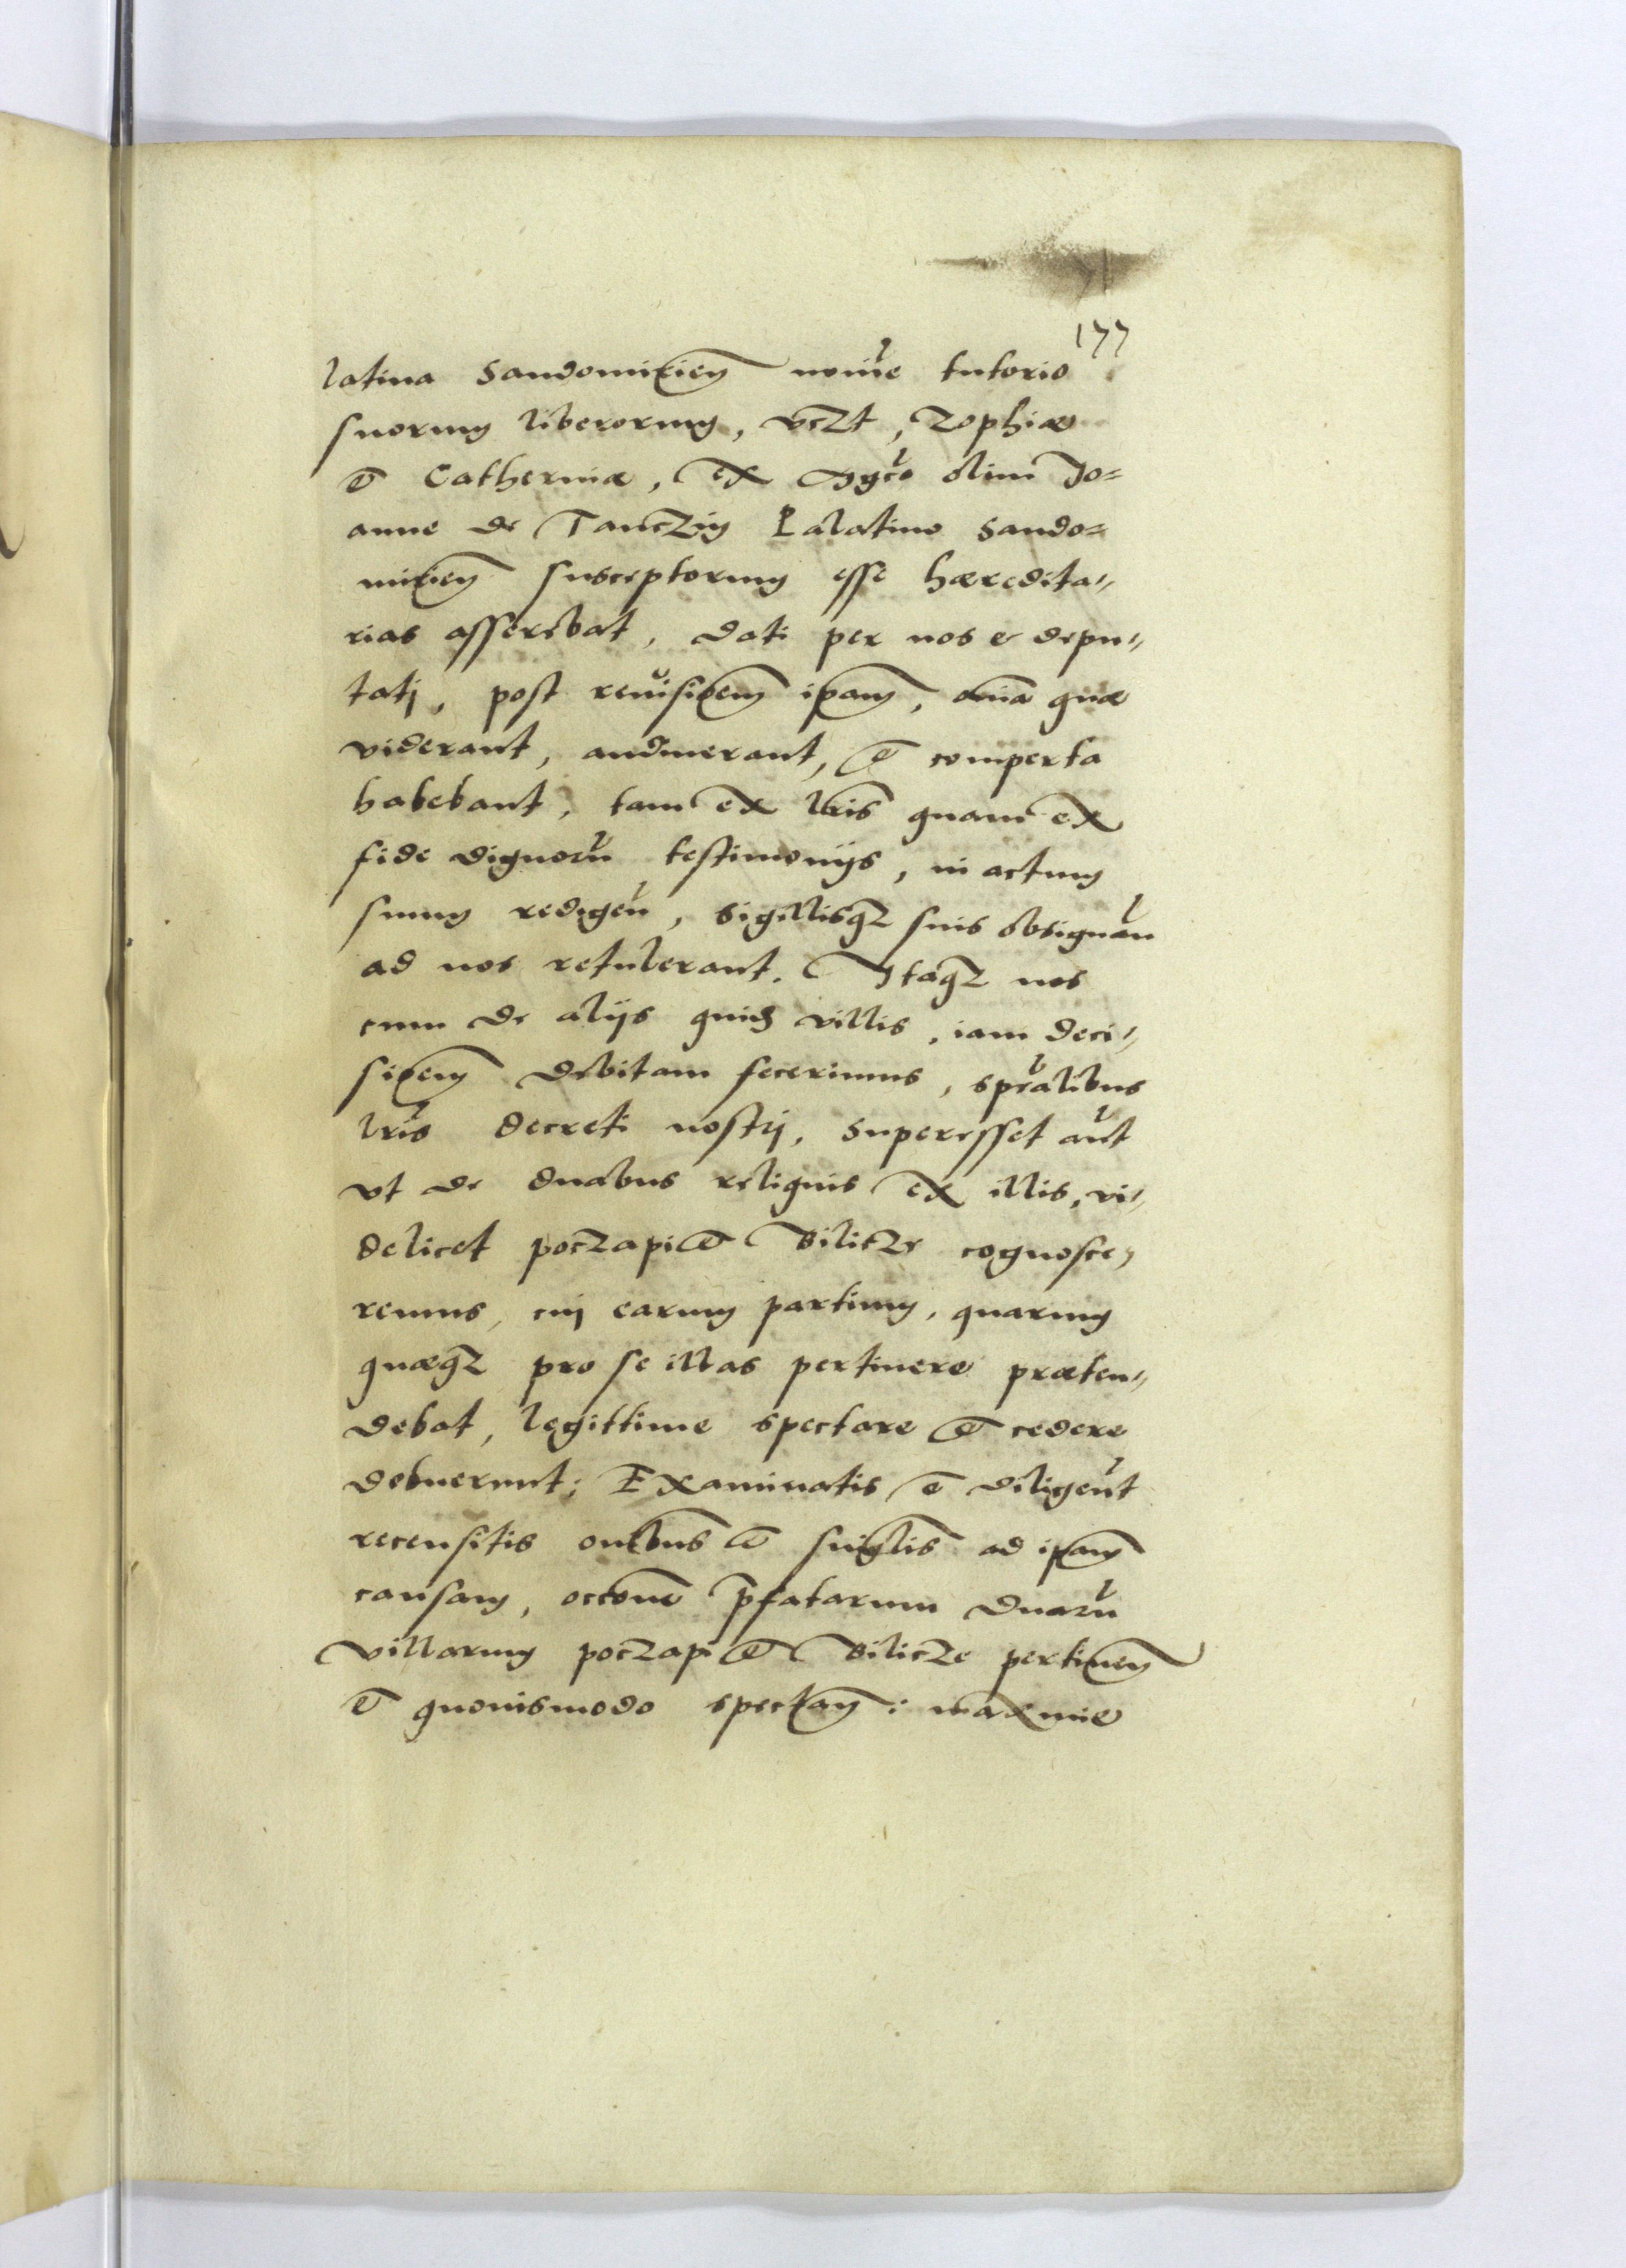 177
latina Sandomirien̄ noīe tutorio
suorum liberorum, vczt, Zophiæ
et Catherinæ, ex Mgco olim Jo=
anne de Tanczin Palatino Sando=
mirien̄ susceptorum esse hæredita-
rias asserebat, dati per nos et depu-
tatj, post reuisioem̄ ip̄am, om̄ia quæ
viderant, audiuerant, et comperta
habebant, tam ex lr̄is quam ex
fide dignorū testimonijs, in actum
suum redigeñ, sigillisqz suis obsignañ
ad nos retulerant. Itaqz nos
cum de alijs quinqz villis, iam deci-
sioem̄ debitam fecerimus, spēalibus
lr̄is decreti nostrj, superesset aūt
vt de duabus reliquis ex illis, vi-
delicet poczapi et Bilicze cognosce-
remus, cuj earum partium, quarum
quæqz pro se illas pertinere præten-
debat, legittime spectare et cedere
debuerunt; Examinatis et diligent̄
recensitis om̄ibus et singlis̄ ad ip̄am
causam, occ̄one p̄fatarum duarū
villarum poczapi et Bilicze pertinen̄
et quouismodo spectan̄: maxime